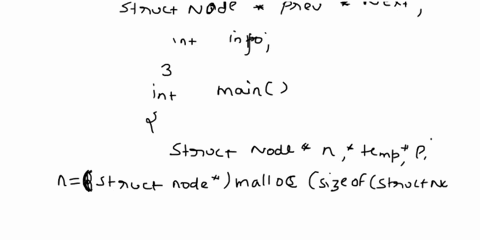 struct Node * prev * next,
int info;
}
int main()
{
struct Node * n, * temp, * P;
n=(struct node*) malloc (size of (struct No